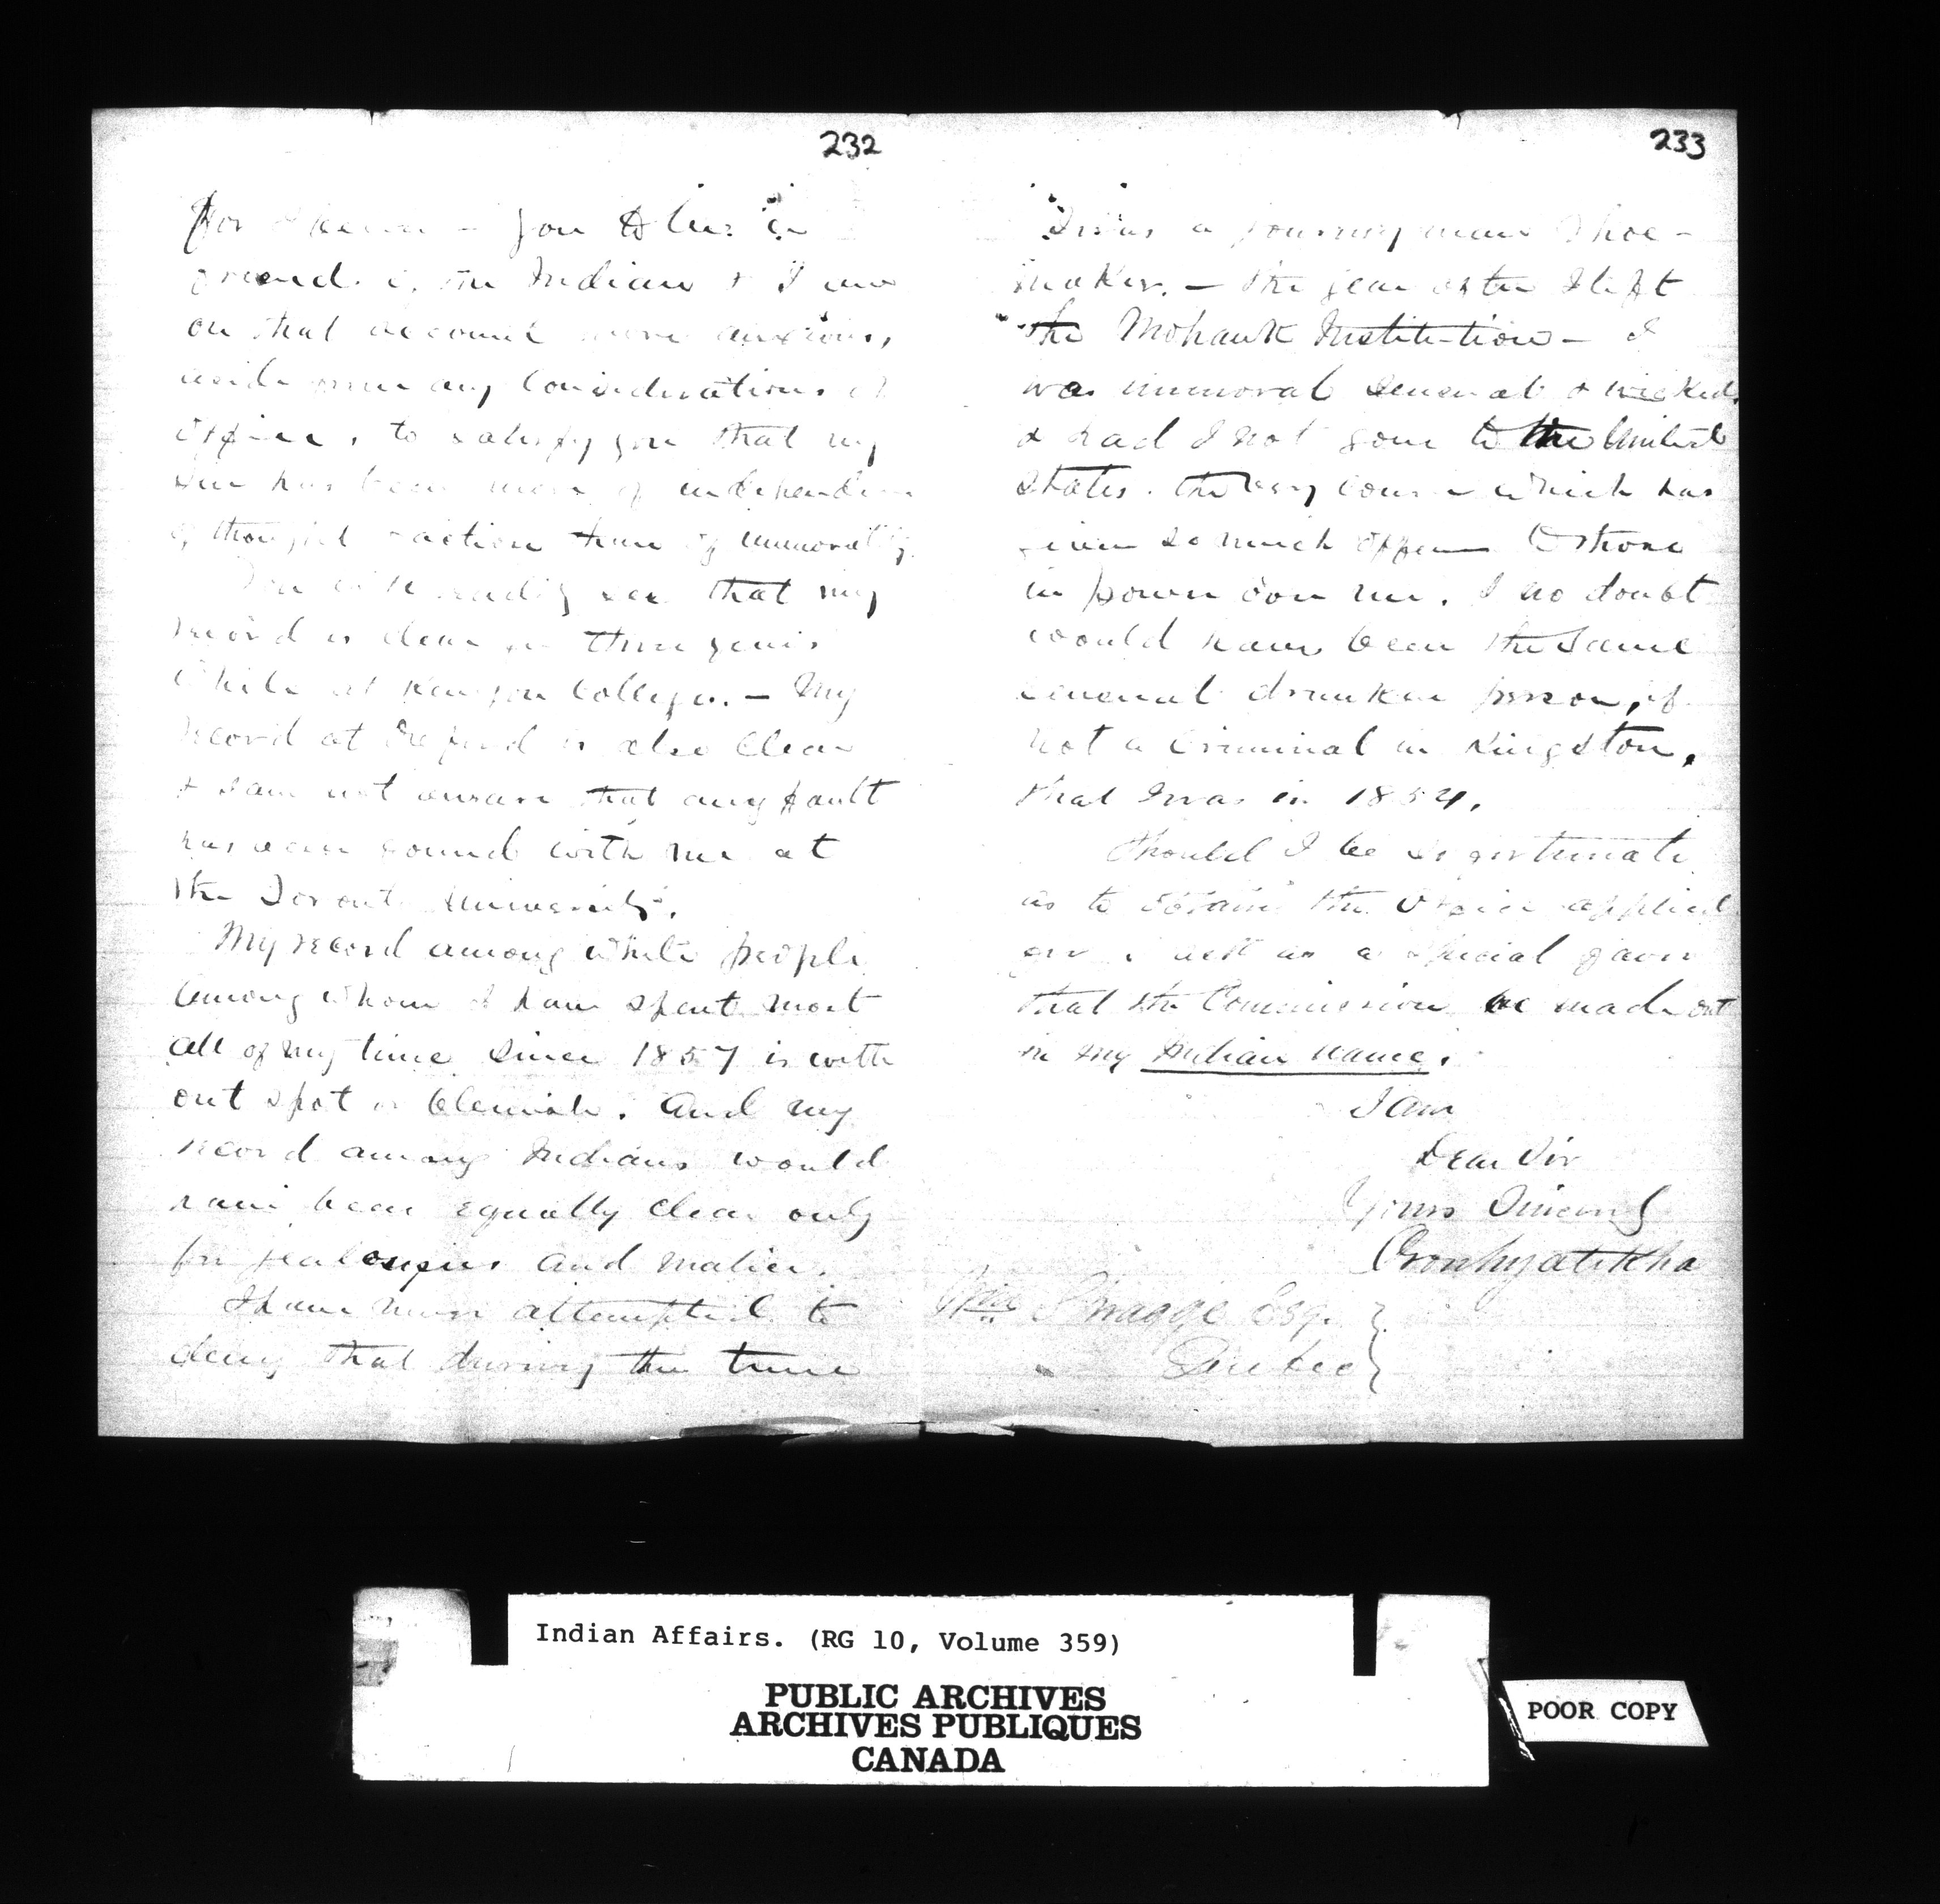 232
For I believe you to be a
friend of the Indian & I am
on that account more anxious,
aside from any Considerations of
office, to satisfy you that my
sin has been more of independence
of thought & action than of immorality.
You will readily see that my
record is clear for three years
While at Kenyon College. — My
record at Oxford is also Clear
& I am not aware that any fault
has been found with me at
the Toronto University.
My record among White people
Among Whom I have spent most
all of my time Since 1857 is with
out spot or blemish. And my
record among Indians would
have been equally clear only
for jealousies and malice.
I have never attempted to
deny that during the time
233
I was a journey man Shoe-
maker. — the year after I left
the Mohawk Institution — I
was immoral sensual & wicked,
& had I not gone to the United
States. the very course which has
given so much offence to those
in power over me. I no doubt
would have been the Same
sensual drunken person, if
not a Criminal in Kingston,
that I was in 1854.
Should I be so fortunate
as to obtain the Office applied
for I ask as a special favor
that the Commission be made out
in my Indian name.
I am
Dear Sir
Yours Sincerely
Oronhyatekha
Wm Spragge Esqr. }
Quebec }
Indian Affairs. (RG 10, Volume 359)
PUBLIC ARCHIVES
ARCHIVES PUBLIQUES
CANADA
POOR COPY